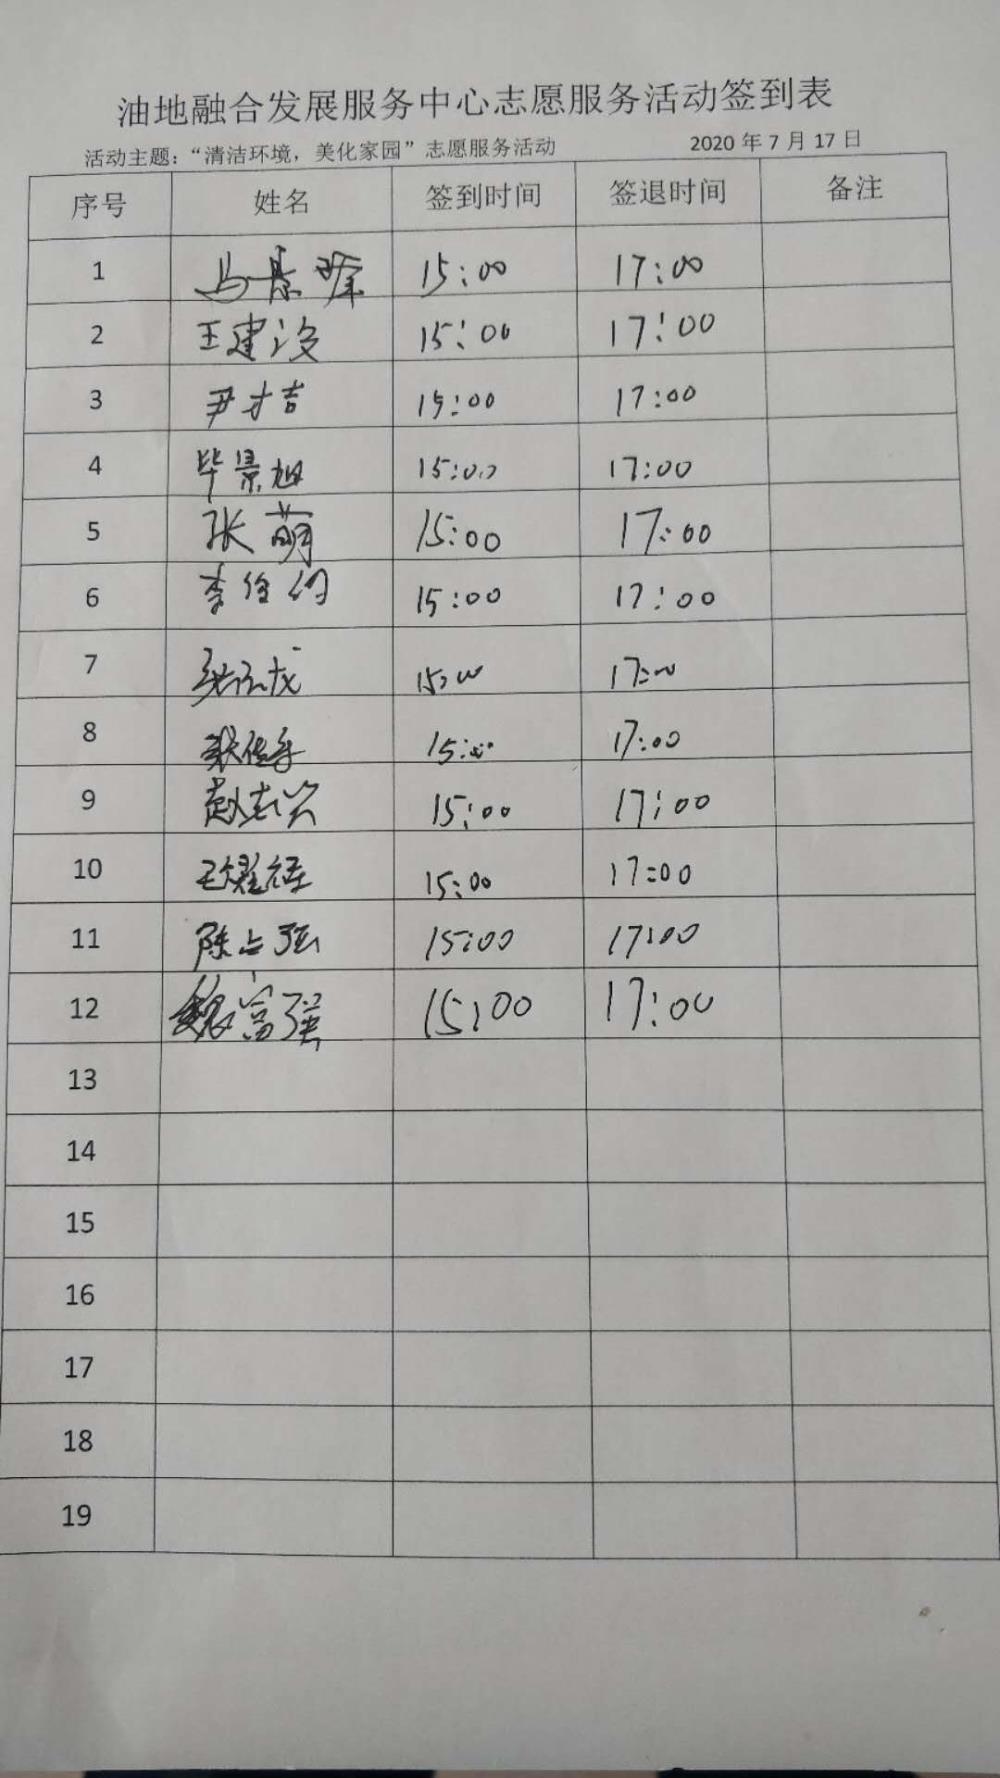 油地融合发展服务中心志愿服务活动签到表
活动主题：“清洁环境，美化家园”志愿服务活动 2020 年 7 月 17 日
序号 姓名 签到时间 签退时间 备注
1 马景峰 15:00 17:00
2 王建设 15:00 17:00
3 尹才吉 15:00 17:00
4 毕景旭 15:00 17:00
5 张萌 15:00 17:00
6 李 15:00 17:00
7 龙 15:00 17:00
8 15:00 17:00
9 赵志兴 15:00 17:00
10 王耀 15:00 17:00
11 陈占强 15:00 17:00
12 魏富强 15:00 17:00
13
14
15
16
17
18
19